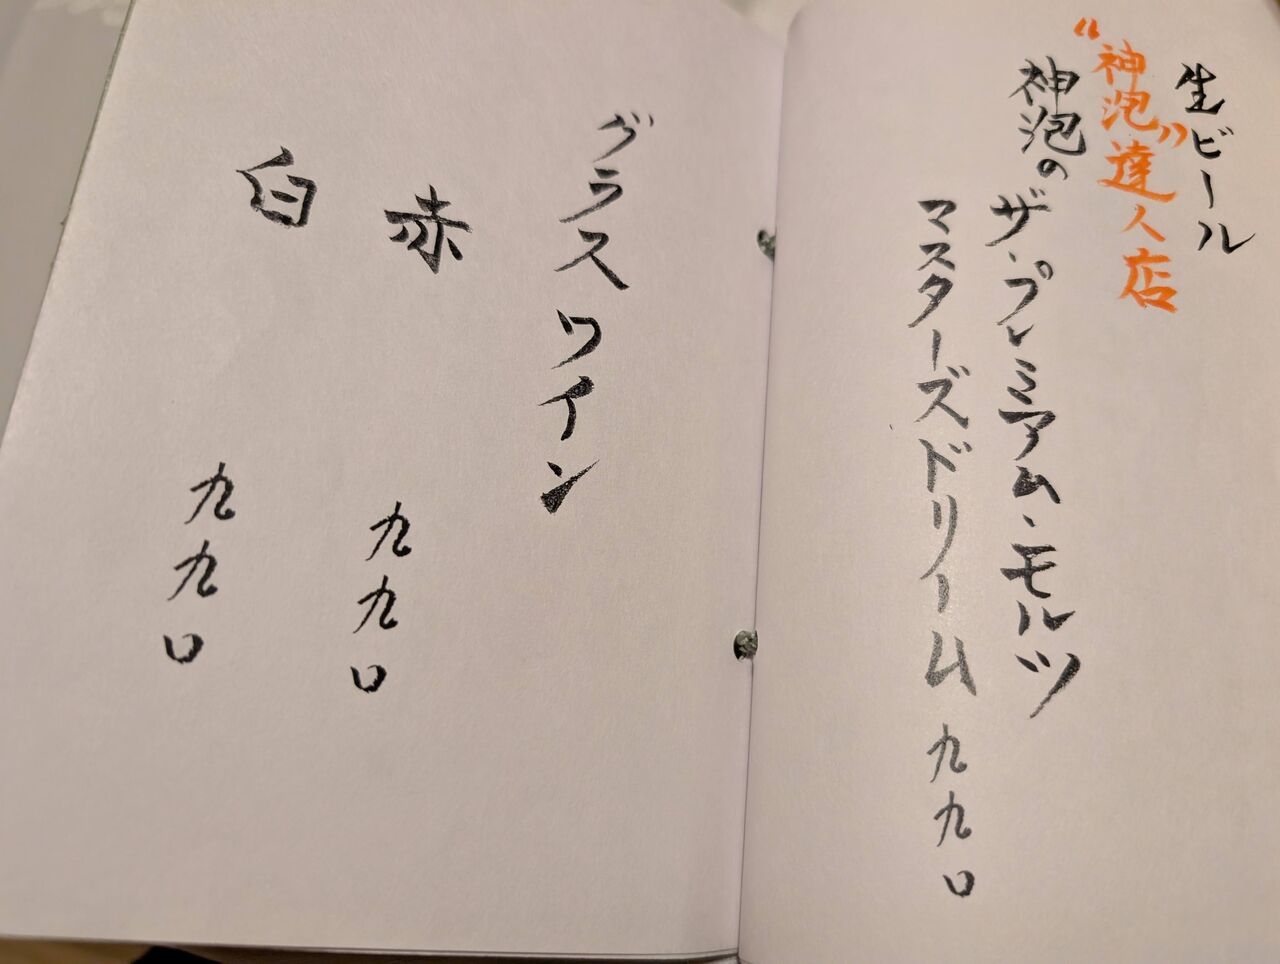 生ビール
“神泡”達人店
神泡の
ザ・プレミアム・モルツ
マスターズドリーム 九九〇
グラスワイン
赤 九九〇
白 九九〇